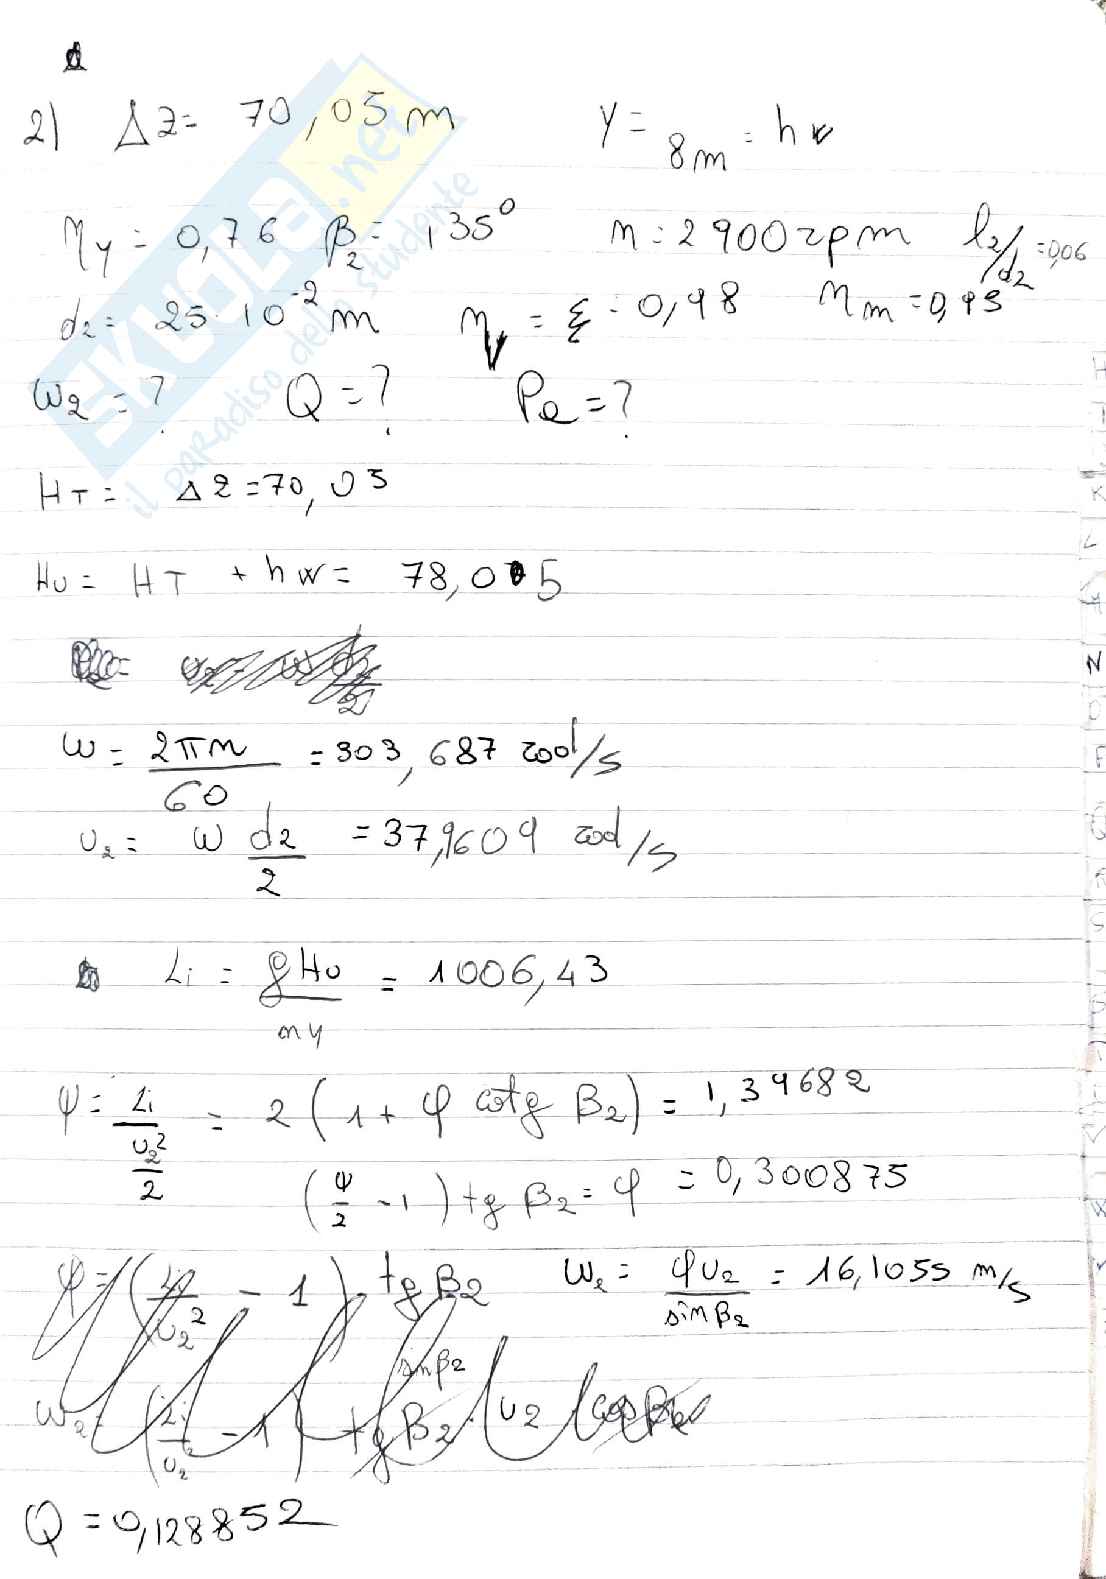 2) Δz= 70,05 m Y= 8m = hw
ηy = 0,76 β2= 135° n=2900 rpm l2/d2 =0,06
d2= 25·10^-2 m ηv = ξ = 0,98 ηm=0,93
W2 = ? Q=? Pa=?
HT= Δz=70,05
Hu= HT + hw= 78,05
ω= 2πn/60 =303,687 rad/s
u2= ω d2/2 =37,9609 rad/s
Li = gHu/ηy = 1006,43
ψ= Li/(u2²/2) = 2(1+φ cotg β2)= 1,39682
(ψ/2 -1) tg β2= φ = 0,300875
φ= (Li/u2² - 1) tg β2 W2= φu2/sin β2 = 16,1055 m/s
sin β2
W2= (Li/u2 -1) tg β2 · u2
Q =0,128852
SKUOLA.net
il paradiso dello studente